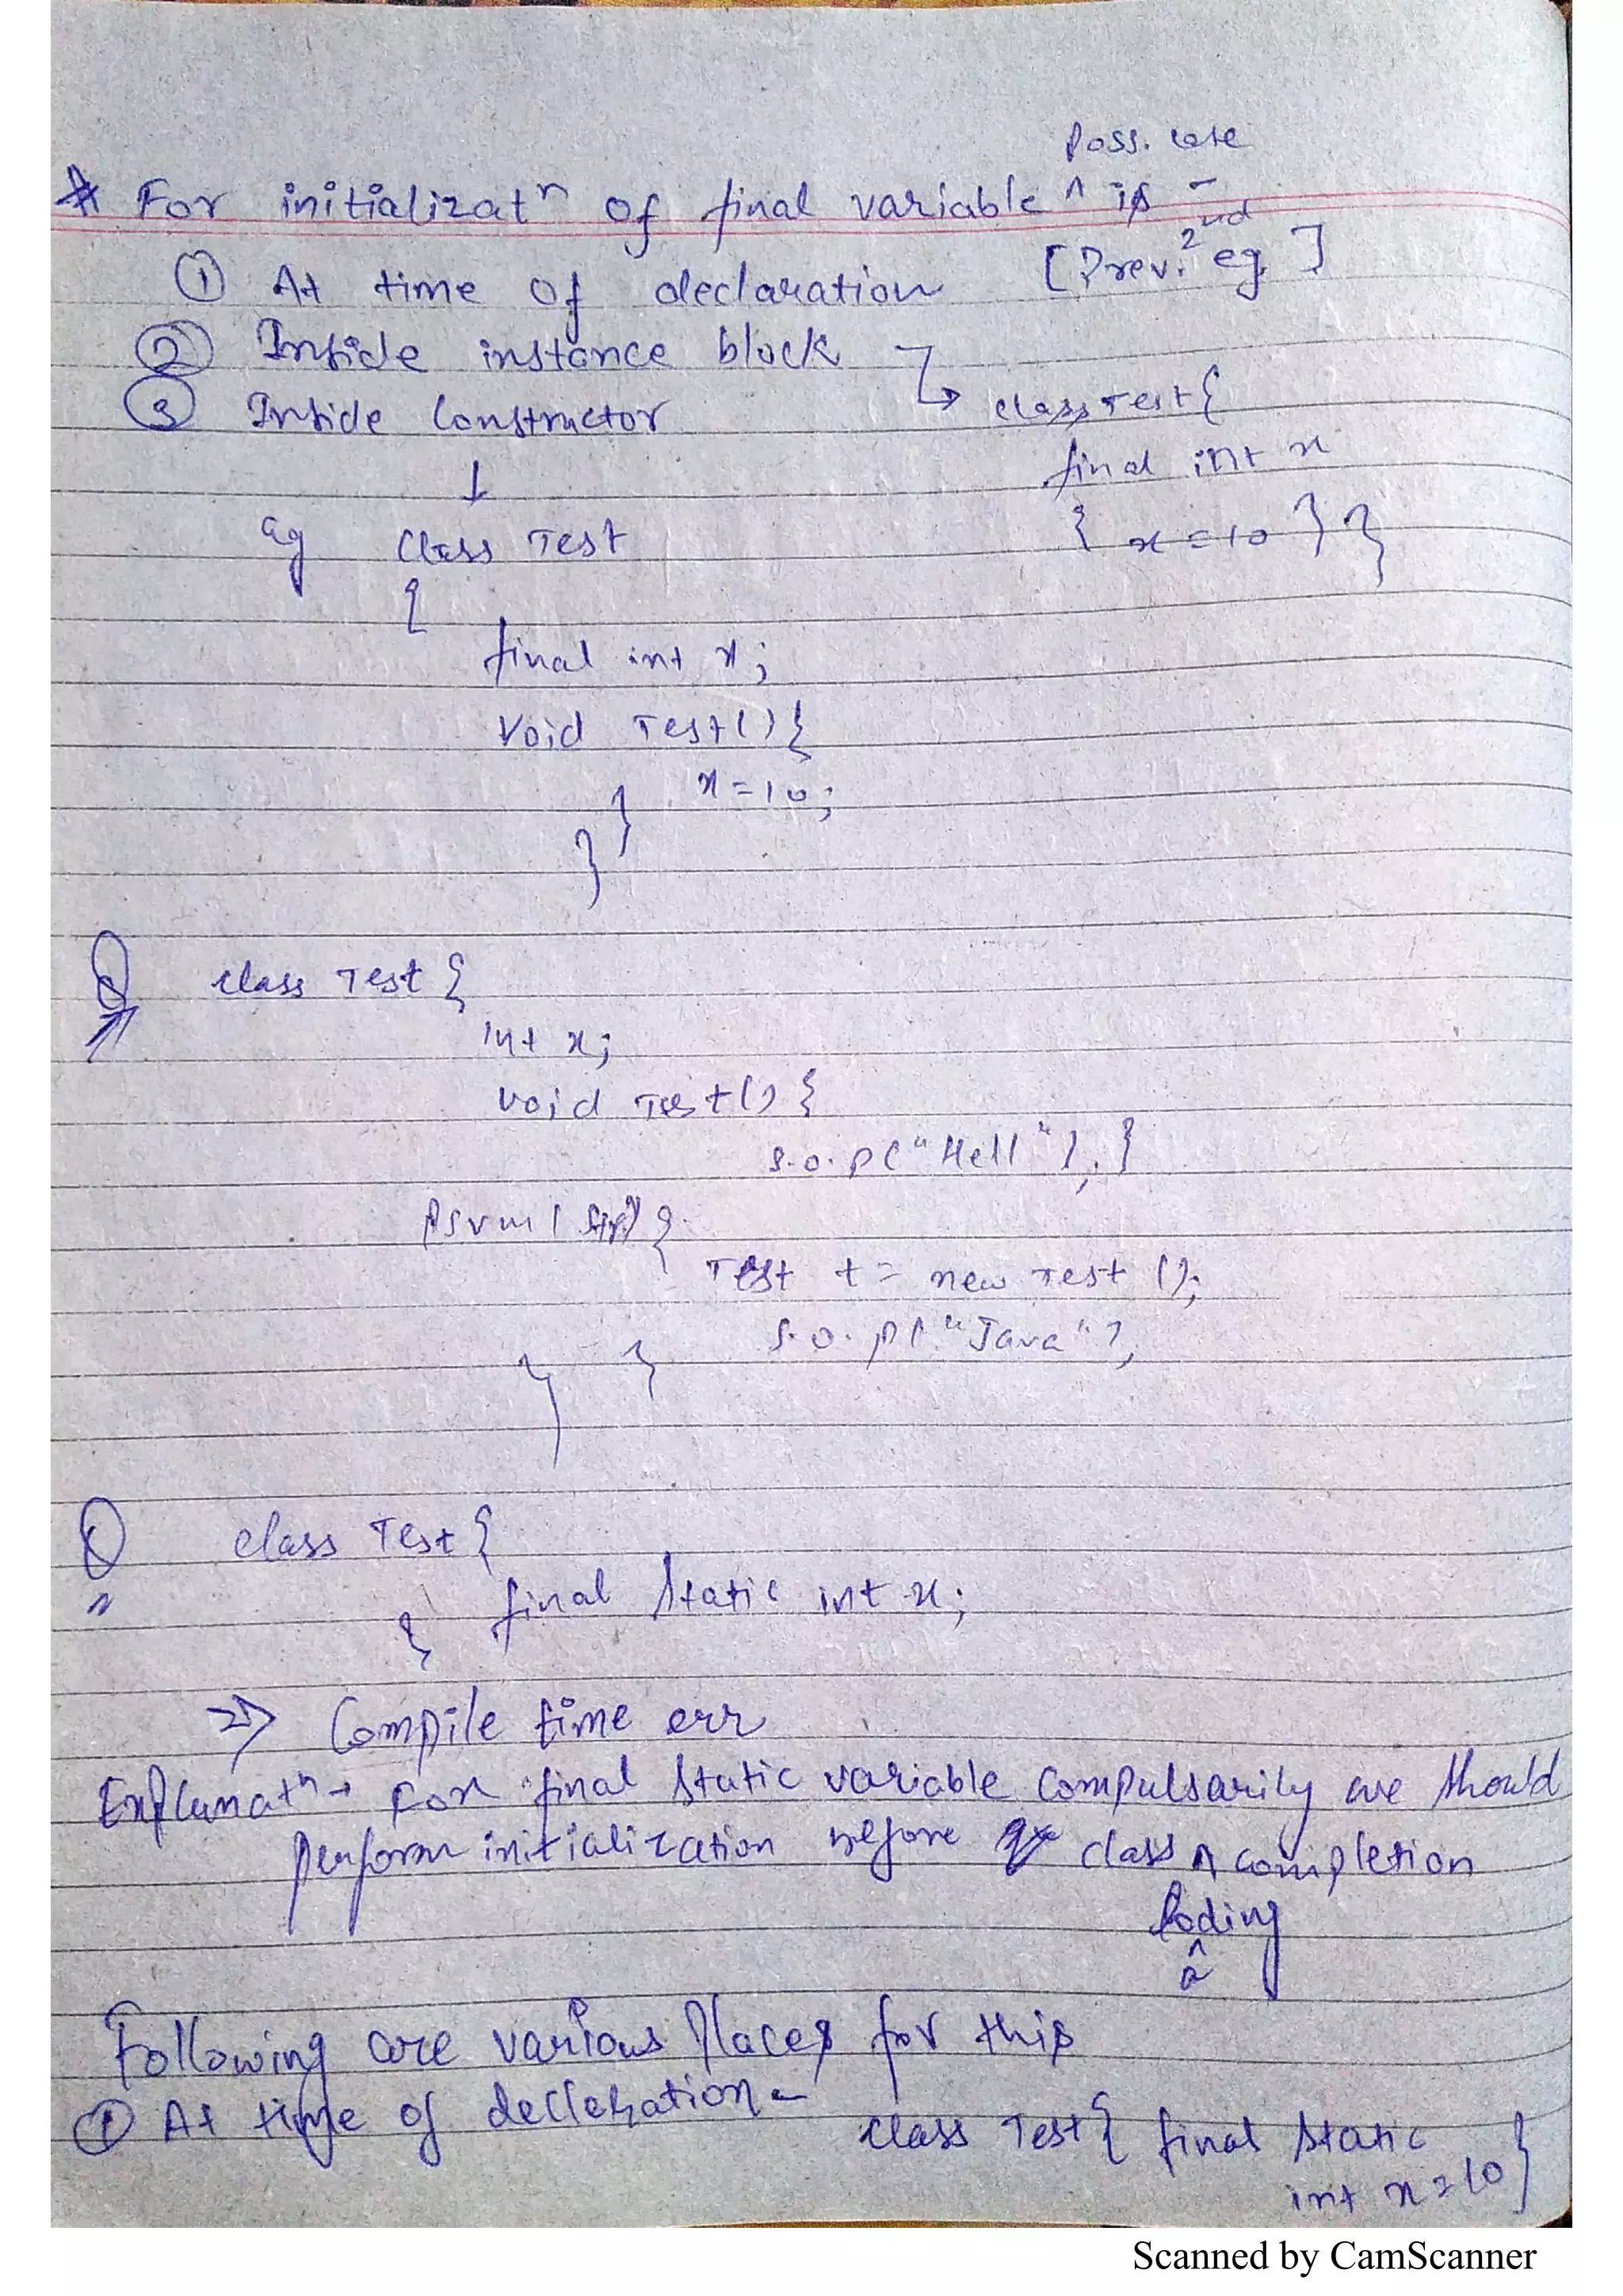 Poss. case
* For initializatn of final variable ^ is -
① At time of declaration [Prev. 2nd eg. ]
② Inside instance block
③ Inside Constructor
class Test {
final int x
{ x = 10 } }
eg Class Test
{
final int x;
Void Test() {
x = 10;
}
}
Q class Test {
int x;
void Test() {
S.o.p("Hell"); }
psvm( ) {
Test t = new Test ();
S.o.p("Java");
} }
Q class Test {
final static int x;
}
=> Compile time err
Explanatn → For final static variable compulsarily we should
perform initialization before class ^ completion
loding
Following are various places for this
① At time of decleration -
class Test { final static
int x = 10 }
Scanned by CamScanner